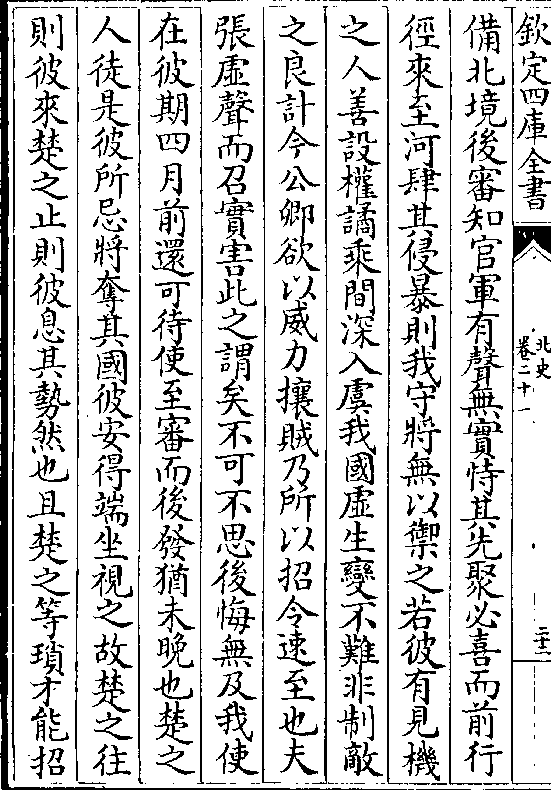 欽定四庫全書
北史
卷二十一
二十二
備北境後審知官軍有聲無實恃其先聚必喜而前行
徑來至河肆其侵暴則我守將無以禦之若彼有見機
之人善設權譎乘間深入虞我國虛生變不難非制敵
之良計今公卿欲以威力攘賊乃所以招令速至也夫
張虛聲而召實害此之謂矣不可不思後悔無及我使
在彼期四月前還可待使至審而後發猶未晚也楚之
人徒是彼所忌將奪其國彼安得端坐視之故楚之往
則彼來楚之止則彼息其勢然也且楚之等瑣才能招